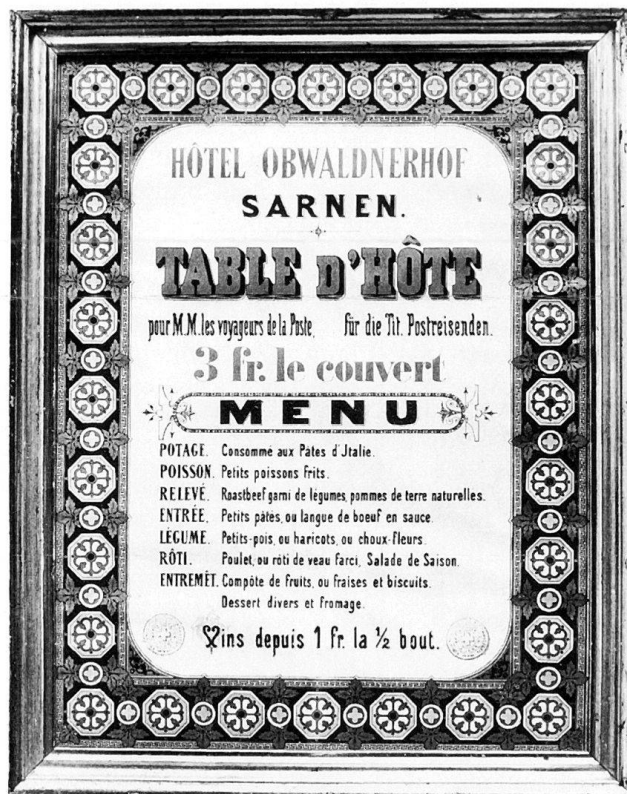 HÔTEL OBWALDNERHOF
SARNEN.
TABLE D'HÔTE
pour M.M. les voyageurs de la Poste, für die Tit. Postreisenden.
3 fr. le couvert
MENU
POTAGE. Consommé aux Pâtes d'Jtalie.
POISSON. Petits poissons frits.
RELEVÉ. Roastbeef garni de légumes, pommes de terre naturelles.
ENTRÉE. Petits pâtés, ou langue de boeuf en sauce.
LÉGUME. Petits-pois, ou haricots, ou choux-fleurs.
RÔTI. Poulet, ou rôti de veau farci, Salade de Saison.
ENTREMÊT. Compôte de fruits, ou fraises et biscuits.
Dessert divers et fromage.
Vins depuis 1 fr. la ½ bout.